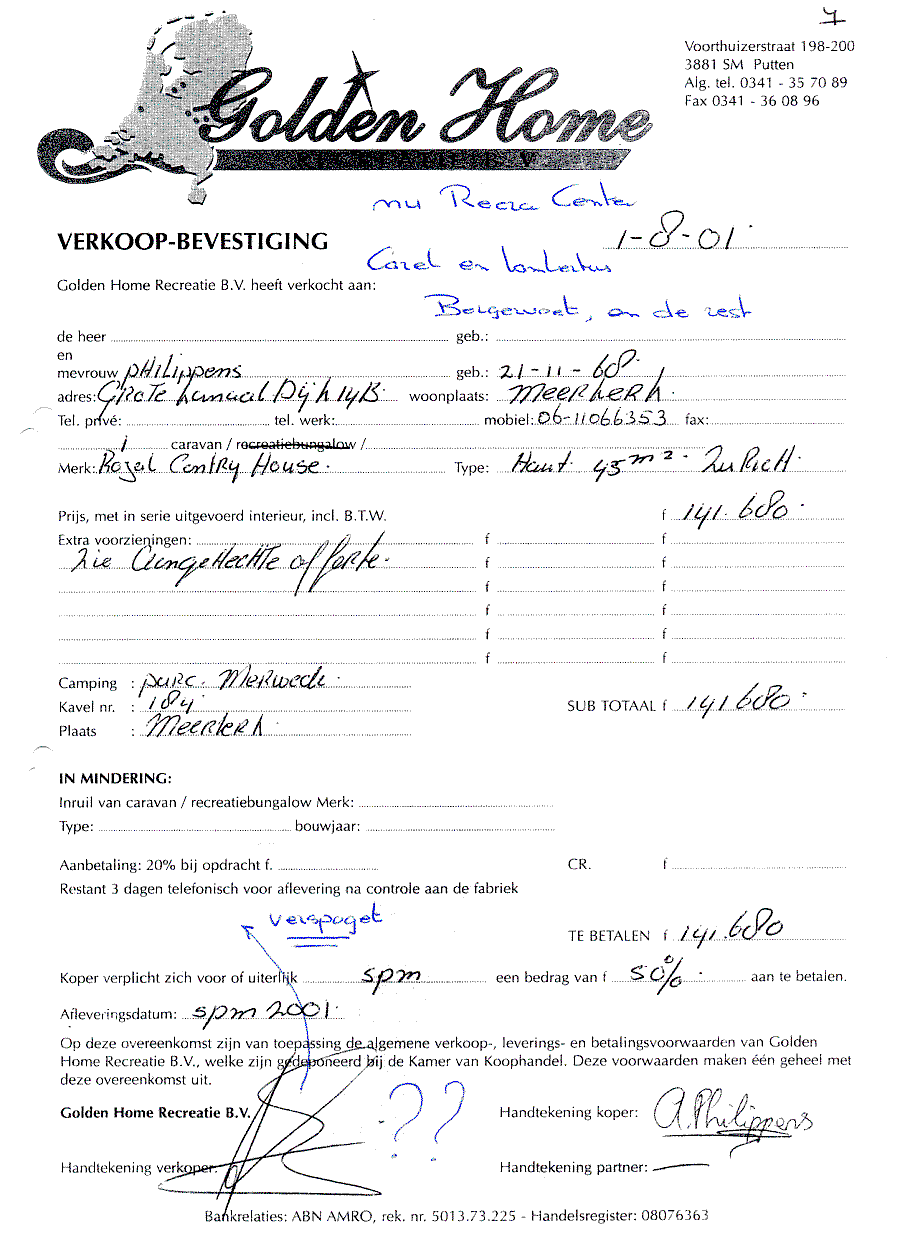 7
Voorthuizerstraat 198-200
3881 SM Putten
Alg. tel. 0341 - 35 70 89
Fax 0341 - 36 08 96
Golden Home
RECREATIE B.V.
nu Recra Center
VERKOOP-BEVESTIGING 1-8-01
Carel en Lambertus
Golden Home Recreatie B.V. heeft verkocht aan:
Bergewoet, en de rest
de heer geb.:
en
mevrouw PHILippens geb.: 21-11-68
adres: GROTE kanaal Dijk 14B woonplaats: MEERKERK
Tel. privé: tel. werk: mobiel: 06-11066353 fax:
1 caravan / recreatiebungalow /
Merk: Royal Contry House Type: Haut 45 m2 Zurich
Prijs, met in serie uitgevoerd interieur, incl. B.T.W. f 141.680
Extra voorzieningen: f f
Zie Aangehechte offerte f f
f f
f f
f f
f f
Camping : parc. Merwede
Kavel nr. : 184 SUB TOTAAL f 141680
Plaats : MEERKERK
IN MINDERING:
Inruil van caravan / recreatiebungalow Merk:
Type: bouwjaar:
Aanbetaling: 20% bij opdracht f. CR. f
Restant 3 dagen telefonisch voor aflevering na controle aan de fabriek
verspaget
TE BETALEN f 141.680
Koper verplicht zich voor of uiterlijk spm een bedrag van f 50% aan te betalen.
Afleveringsdatum: spm 2001
Op deze overeenkomst zijn van toepassing de algemene verkoop-, leverings- en betalingsvoorwaarden van Golden
Home Recreatie B.V., welke zijn gedeponeerd bij de Kamer van Koophandel. Deze voorwaarden maken één geheel met
deze overeenkomst uit.
Golden Home Recreatie B.V. ?? Handtekening koper: A.Philippens
Handtekening verkoper: Handtekening partner:
Bankrelaties: ABN AMRO, rek. nr. 5013.73.225 - Handelsregister: 08076363